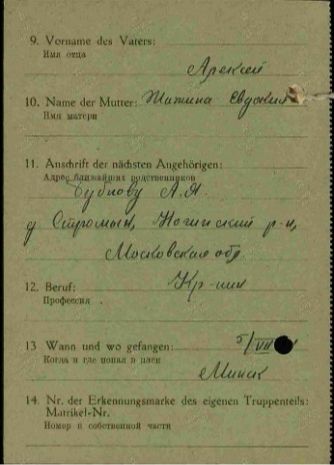 9. Vorname des Vaters:
Имя отца
Алексей
10. Name der Mutter: Евдокия
Имя матери
11. Anschrift der nächsten Angehörigen:
Адрес ближайших родственников
Бубнову А.Я.
д Стромынь, Ногинский р-н,
Московская обл
12. Beruf: Кр-нин
Профессия
13 Wann und wo gefangen: 5/VII
Когда и где попал в плен
Минск
14. Nr. der Erkennungsmarke des eigenen Truppenteils:
Matrikel-Nr.
Номер в собственной части